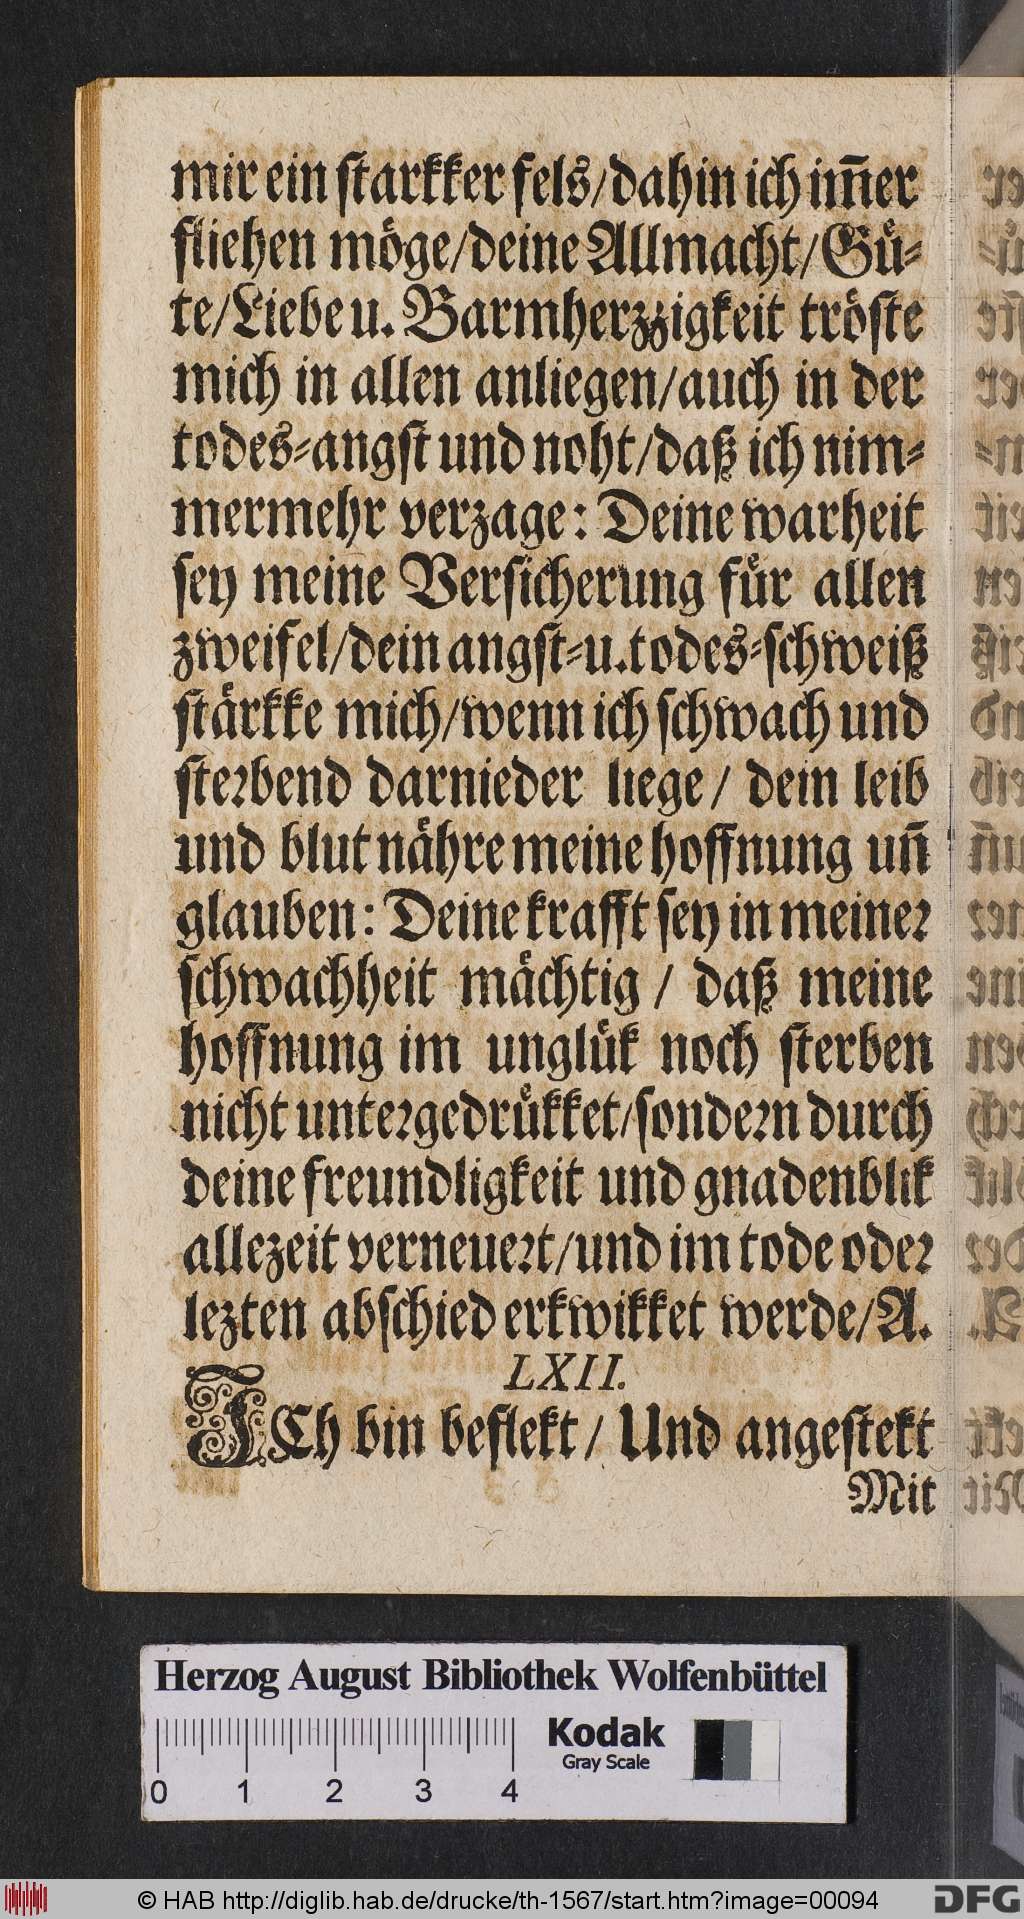 mir ein starkker fels/dahin ich im̃er
fliehen möge/deine Allmacht/Gü-
te/Liebe u. Barmherzzigkeit tröste
mich in allen anliegen/auch in der
todes-angst und noht/daß ich nim-
mermehr verzage: Deine warheit
sey meine Versicherung für allen
zweifel/dein angst-u.todes-schweiß
stärkke mich/wenn ich schwach und
sterbend darnieder liege/ dein leib
und blut nähre meine hoffnung un̄
glauben: Deine krafft sey in meiner
schwachheit mächtig / daß meine
hoffnung im unglük noch sterben
nicht untergedrükket/sondern durch
deine freundligkeit und gnadenblik
allezeit verneuert/und im tode oder
lezten abschied erkwikket werde/A.
LXII.
ICh bin beflekt / Und angestekt
Mit
Herzog August Bibliothek Wolfenbüttel
Kodak
Gray Scale
0 1 2 3 4
© HAB http://diglib.hab.de/drucke/th-1567/start.htm?image=00094
DFG